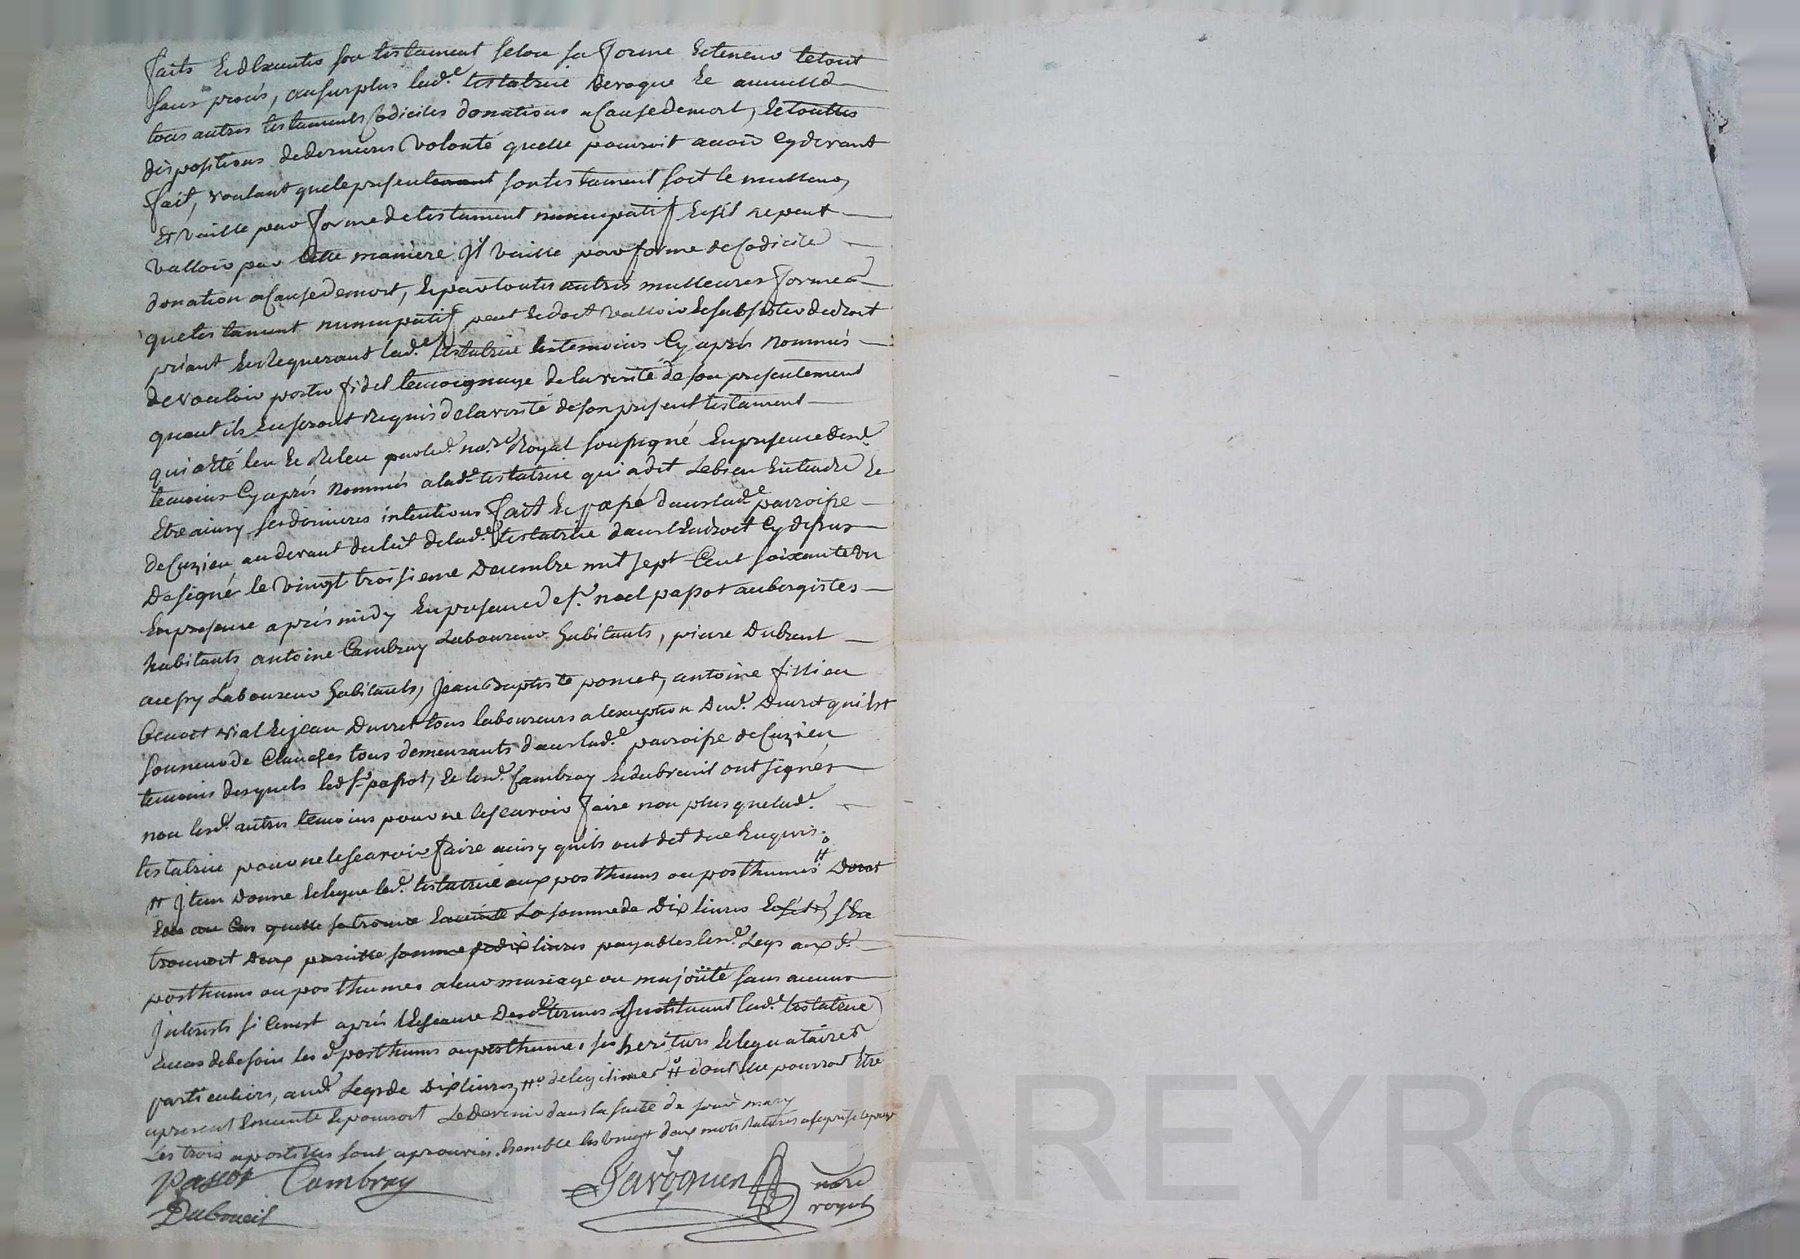 faits Et dExecuter son testament selon sa forme Et teneur le tout
sans procés, au surplus lad.e testatrice Revoque Et annulle
tous autres testaments Codiciles donations a Cause de mort, Et touttes
dispositions de dernieres volonté quelle pourroit avoir Cy devant
fait, voulant que le present son testament soit le meilleur,
Et vaille par forme de testament nuncupatif Et s'il ne peut
valloir par Cette maniere Jl vaille par forme de Codicile
donation a Cause de mort, Et par toutes autres meilleures formes
que testament nuncupatif peut Et doit valloir Et subsister de droit
priant Et Requerant lad.e testatrice les temoins Cy aprés nommés
de vouloir porter fidel temoignage de la verité de son present
quant ils En seront Requis de la verité de son present testament
qui a Eté leu Et Releu par led. no.re Royal soussigné En presence desd.
temoins Cy aprés nommés a lad. testatrice qui a dit Le bien Entendre Et
Etre ainsy ses dernieres intentions fait Et passé dans lad.e parroisse
de Cuzieu au devant du lit de lad.e testatrice dans l'Endroit Cy dessus
designé le vingt troisieme Decembre mil sept Cent soixante un
En presence aprés midy En presence de s.r noel passot aubergistes
habitants antoine Cambray Laboureur habitants, pierre Dubreuil
aussy Laboureur habitants, Jean Baptiste poncet, antoine fillieu
Benoit vial Et jean Ducret tous laboureurs a lexception dud. Ducret qui Est
sonneur de Cloches tous demeurants dans lad.e parroisse de Cuzieu
temoins desquels led. s.r passot, Et lesd. Cambray Et dubreuil ont signés
non lesd. autres temoins pour ne le scavoir faire non plus que lad.e
testatrice pour ne le scavoir faire ainsy quils ont dit de ce Enquis.
# Jtem donne Et legue lad. testatrice aux posthumes ou posthumes # Dont
Elle au Cas quelle se trouve Enceinte La somme de Dix livres Et s'il s'En
trouvoit deux pareille somme de dix livres payables lesd. Legs aux d.
posthumes ou posthumes a leur mariage ou majorité sans aucuns
Jnterests si Ce n'est aprés l'Escheance Desd. termes Jnstituant lad.e testatrice
En cas de besoin les d. posthumes ou posthume, ses heritiers Et legataires
particuliers, aud. Legs de Dix livres, # de legitimes # dont Elle pourroit Etre
a present Enceinte Et pourroit Le Devenir dans la suitte de son mary
Les trois apostilles sont aprouvées. Ensemble les vingt deux mots Raturés
Passot Cambray
Dubrueil
no.re
royal